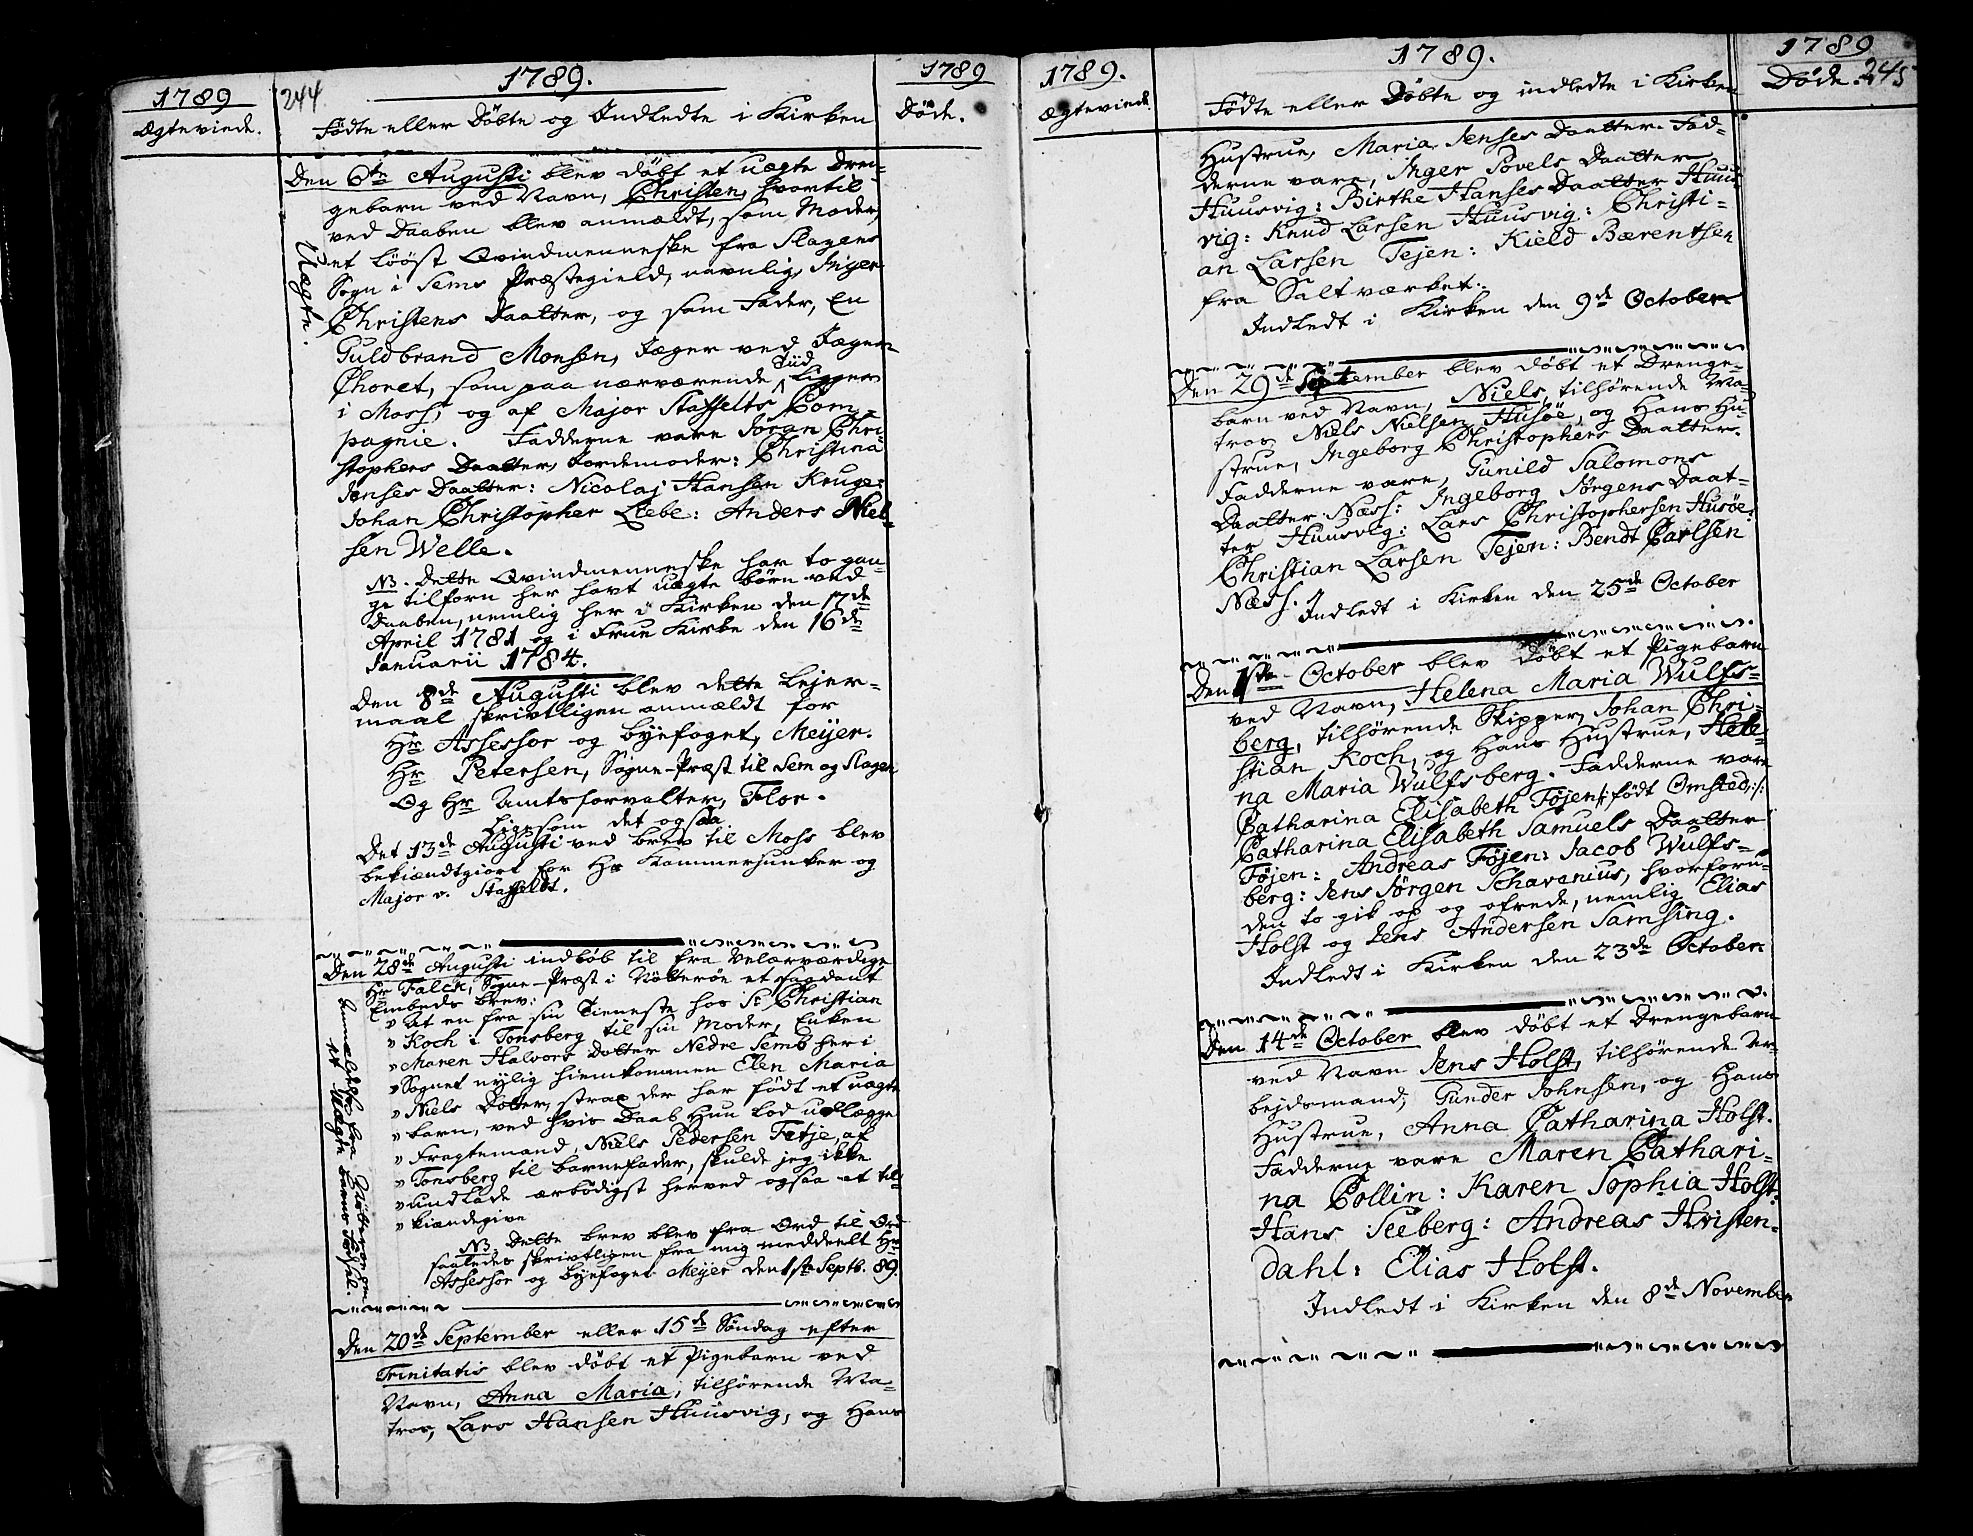 1789
Ægteviede.
244.
1789.
Fødte eller Døbte og Indledte i Kirken
1789
Døde.
Den 6te Augusti blev døbt et uægte Dren-
gebarn ved Navn, Christen, hvortil
ved Daaben blev anmældt, som Moder,
et løøst Qvindmenneske fra Slagens
Sogn i Sems Præstegield, navnlig, Inger
Christens Daatter, og som Fader, En
Uægte.
Guldbrand Monsen, Jæger ved Jæger-
Choret, som paa nærværende Tiid ligger
i Moss, og af Major Staffelts Com-
pagnie. Fadderne vare Søran Chri-
stophers Daatter, Jordemoder: Christina
Jenses Daatter: Nicolaj Hansen Kruge:
Johan Christopher Liebe: Anders Niel-
sen Welle.
NB. Dette Qvindmenneske har to gan-
ge tilforn her havt uægte børn ved
Daaben, nemlig her i Kirken den 17de
April 1781 og i Frue Kirke den 16de
Januarii 1784.
Den 8de Augusti blev dette Lejer-
maal skrivtligen anmældt for
Hr Assessor og byefoget, Meyer.
Hr Petersen, Sogne-Præst til Sem og Slagen
Og Hr Amtsforvalter, Flor.
Ligesom det ogsaa
Det 13de Augusti ved brev til Moss blev
bekiændtgiort for Hr Kammerjunker og
Major v. Staffeldt.
Den 28de Augusti indløb til fra Velærværdige
Hr Falck, Sogne-Præst i Nøtterøe et saadant
Embeds brev:
" At en fra sin Tieneste hos Sr Christian
" Koch i Tønsberg til sin Moder, Enken
" Maren Halvors Dotter Nedre Semb her i
" Sognet nylig hiemkommen Elen Maria
" Niels Dotter, strax der har født et uægte
" barn, ved hvis Daab Hun lod udlægge
" Fragtemand, Niels Pedersen Tetje, af
" Tønsberg til barnefader, skulde jeg ikke
" undlade ærbødigst herved ogsaa at til-
" kiændegive
Anmældelse fra Nøtterøe om
et Uægte barns Fødsel.
NB. Dette brev blev fra Ord til Ord
saaledes skrivtligen fra mig meddeelt Hr
Assessor og byefoget Meyer den 1ste Septb. 89.
Den 20de September eller 15de Søndag efter
Trinitatis blev døbt et Pigebarn ved
Navn, Anna Maria, tilhørende Ma-
tros, Lars Hansen Huusvig, og Hans
1789.
Ægteviede.
1789.
Fødte eller Døbte og indledte i Kirken
1789
Døde. 245
Hustrue, Maria Jenses Daatter. Fad-
derne vare, Inger Povels Daatter
Huusvig: Birthe Hanses Daatter Huus
vig: Knud Larsen Huusvig: Christi-
an Larsen Tejen: Kield Bærentsen
fra Saltværket.
Indledt i Kirken den 9de October.
Den 29de September blev døbt et Drenge-
barn ved Navn, Niels, tilhørende Ma-
tros Niels Nielsen Husøe, og Hans Hu-
strue, Ingeborg Christophers Daatter.
Fadderne vare, Gunild Salomons
Daatter Næss: Ingeborg Jørgens Daat-
ter Huusvig: Lars Christophersen Husøe:
Christian Larsen Tejen: Bendt Carlsen
Næss.
Indledt i Kirken den 25de October
Den 1ste October blev døbt et Pigebarn
ved Navn, Helena Maria Wulfs-
berg, tilhørende Skipper, Johan Chri-
stian Koch, og Hans Hustrue, Hele-
na Maria Wulfsberg. Fadderne vare
Catharina Elisabeth Føjen /: født Omsted, :/
Catharina Elisabeth Samuels Daatter
Føjen: Andreas Føjen: Jacob Wulfs-
berg: Jens Jørgen Schavenius, hvorforu-
den to gik op og ofrede, nemlig Elias
Holst og Jens Andersen Samsing.
Indledt i Kirken den 23de October
Den 14de October blev døbt et Drengebarn
ved Navn Jens Holst, tilhørende Ar-
bejdsmand, Gunder Johnsen, og Hans
Hustrue, Anna Catharina Holst.
Fadderne vare Maren Cathari-
na Collin: Karen Sophia Holst:
Hans Seeberg: Andreas Hvisten-
dahl: Elias Holst.
Indledt i Kirken den 8de November